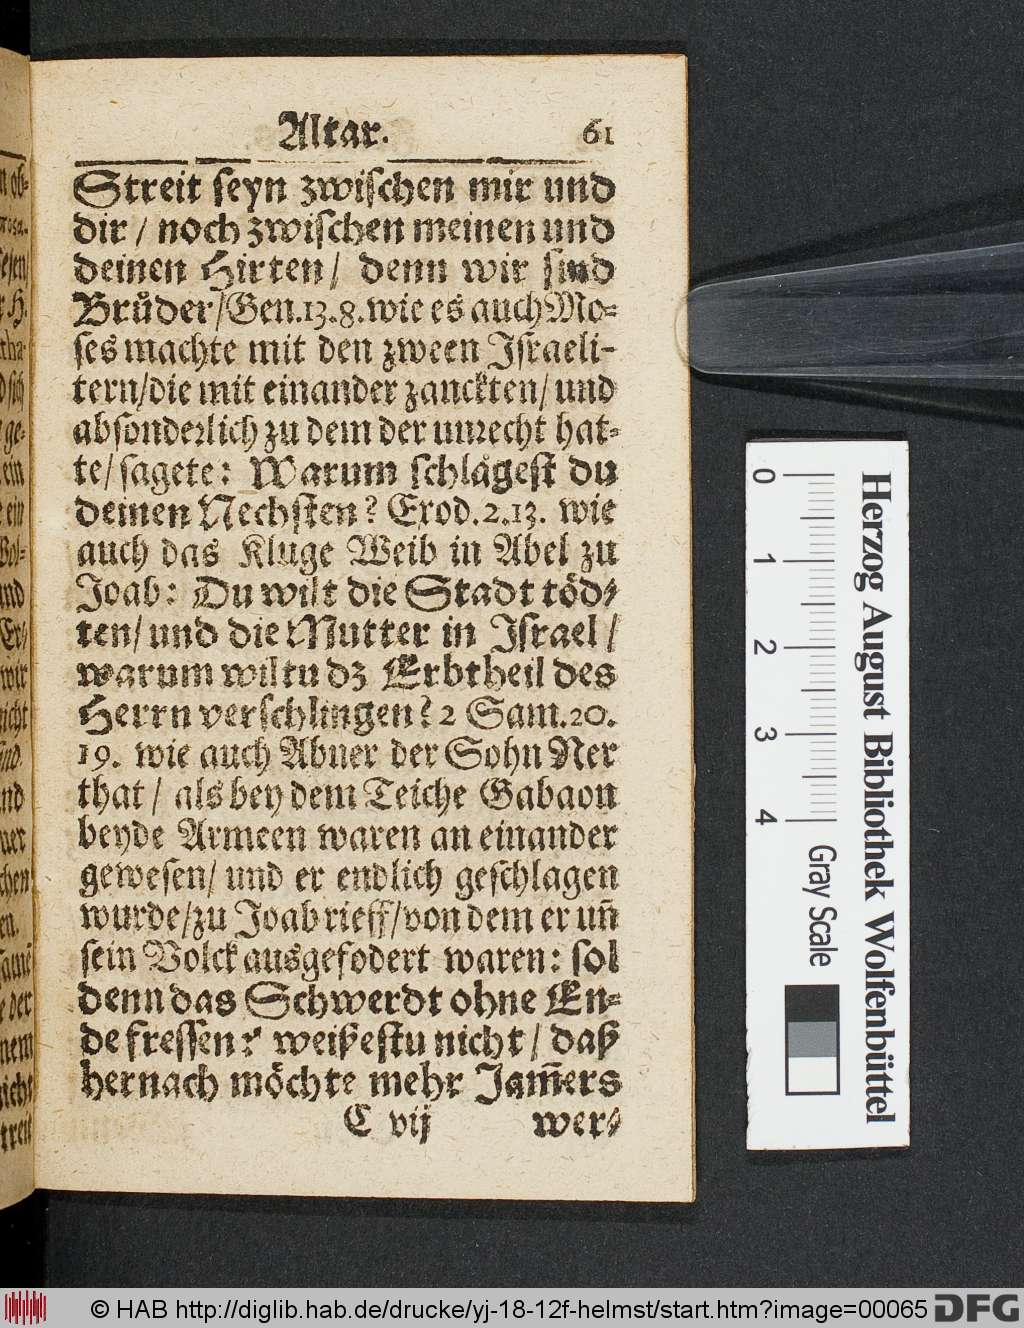 Altar. 61
Streit seyn zwischen mir und
dir / noch zwischen meinen und
deinen Hirten / denn wir sind
Bruͤder/Gen.13.8.wie es auch Mo-
ses machte mit den zween Israeli-
tern/die mit einander zanckten/ und
absonderlich zu dem der unrecht hat-
te/ sagete: Warum schlaͤgest du
deinen Nechsten? Exod.2.13. wie
auch das Kluge Weib in Abel zu
Joab: Du wilt die Stadt töd-
ten/ und die Mutter in Israel /
warum wiltu dz Erbtheil des
Herrn verschlingen? 2 Sam.20.
19. wie auch Abner der Sohn Ner
that / als bey dem Teiche Gabaon
beyde Armeen waren an einander
gewesen/ und er endlich geschlagen
wurde/zu Joab rieff/von dem er uñ
sein Volck ausgefodert waren: sol
denn das Schwerdt ohne En-
de fressen? weißestu nicht / daß
hernach möchte mehr Jam̃ers
C vij wer-
0 1 2 3 4
Herzog August Bibliothek Wolfenbüttel
Gray Scale
© HAB http://diglib.hab.de/drucke/yj-18-12f-helmst/start.htm?image=00065 DFG